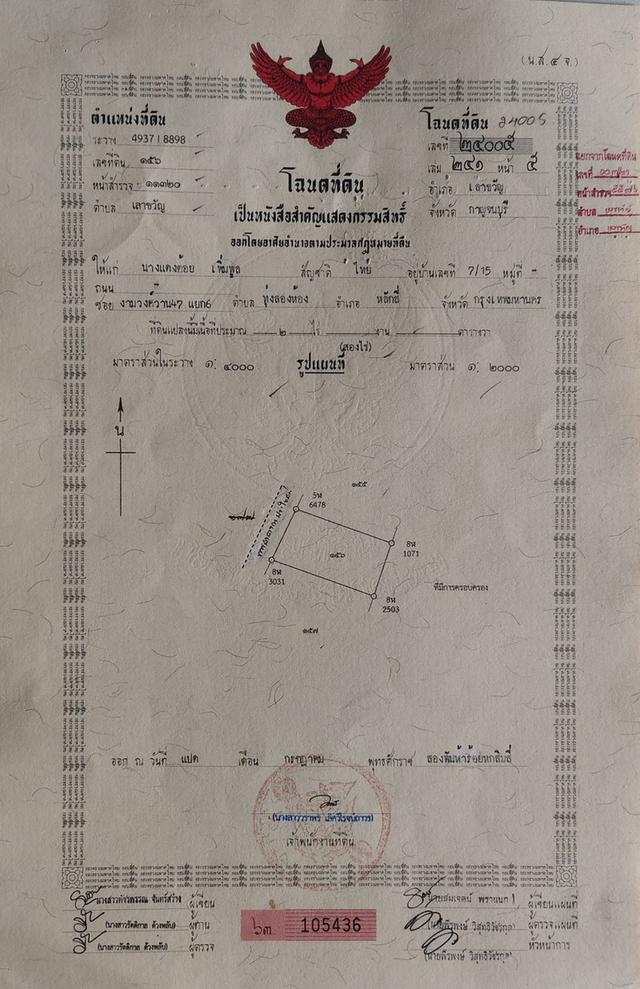 (น.ส.๔ จ.)
ตำแหน่งที่ดิน
ระวาง 4937 I 8898
เลขที่ดิน ๑๕๖
หน้าสำรวจ ๑๑๓๒๐
ตำบล เลาขวัญ
โฉนดที่ดิน 24005
เลขที่ ๒๔๐๐๕
เล่ม ๒๔๑ หน้า ๕
อำเภอ เลาขวัญ
จังหวัด กาญจนบุรี
แยกจากโฉนดที่ดิน
เลขที่
หน้าสำรวจ
ตำบล
อำเภอ
โฉนดที่ดิน
เป็นหนังสือสำคัญแสดงกรรมสิทธิ์
ออกโดยอาศัยอำนาจตามประมวลกฎหมายที่ดิน
ให้แก่ นางแตงต้อย เพิ่มพูล สัญชาติ ไทย อยู่บ้านเลขที่ 7/15 หมู่ที่ -
ถนน
ซอย งามวงศ์วาน47 แยก6 ตำบล ทุ่งสองห้อง อำเภอ หลักสี่ จังหวัด กรุงเทพมหานคร
ที่ดินแปลงนี้มีเนื้อที่ประมาณ ๒ ไร่ งาน ตารางวา
(สองไร่)
มาตราส่วนในระวาง ๑: ๔๐๐๐ รูปแผนที่ มาตราส่วน ๑: ๒๐๐๐
น
๑๕๕
๑๗๗
5ห
6478
8ห
1071
๑๕๖
8ห
3031
8ห
2503
ที่มีการครอบครอง
๑๕๗
ออก ณ วันที่ แปด เดือน กรกฎาคม พุทธศักราช สองพันห้าร้อยหกสิบสี่
เจ้าพนักงานที่ดิน
ผู้เขียน
(นางสาวรัตติกาล ด้วงพลับ) ผู้ทาน
(นางสาวรัตติกาล ด้วงพลับ) ผู้ตรวจ
๖๓ 105436
ผู้เขียนแผนที่
ผู้ตรวจแผนที่
หัวหน้าการ